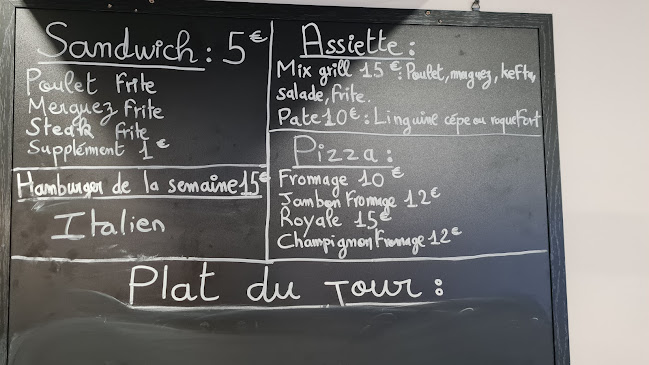 Sandwich : 5€
Poulet frite
Merguez frite
Steak frite
Supplément 1€
Hamburger de la semaine 15€
Italien
Assiette :
Mix grill 15€ : Poulet, merguez, kefta,
salade, frite.
Pate 10€ : Linguine cépe ou roquefort
Pizza :
Fromage 10€
Jambon fromage 12€
Royale 15€
Champignon Fromage 12€
Plat du Jour :